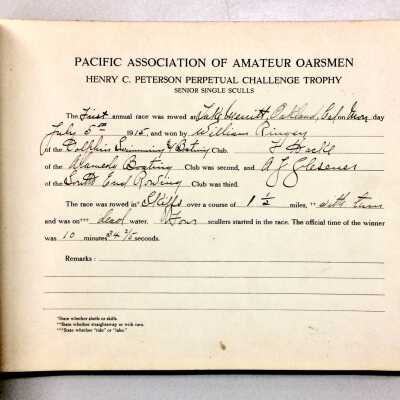 PACIFIC ASSOCIATION OF AMATEUR OARSMEN
HENRY C. PETERSON PERPETUAL CHALLENGE TROPHY
SENIOR SINGLE SCULLS
The First annual race was rowed at Lake Merritt, Oakland, Cal on Mon day
July 5th 1915 and won by William Ringey
of the Dolphin Swimming & Boating Club.
of the Alameda Boating Club was second, and A J Glesener
of the South End Rowing Club was third.
The race was rowed in* Skiffs over a course of 1 1/2 miles, ** with turn
and was on*** dead water. Four scullers started in the race. The official time of the winner
was 10 minutes 34 2/5 seconds.
Remarks:
*State whether shells or skiffs.
**State whether straightaway or with turn.
***State whether "tide" or "lake."